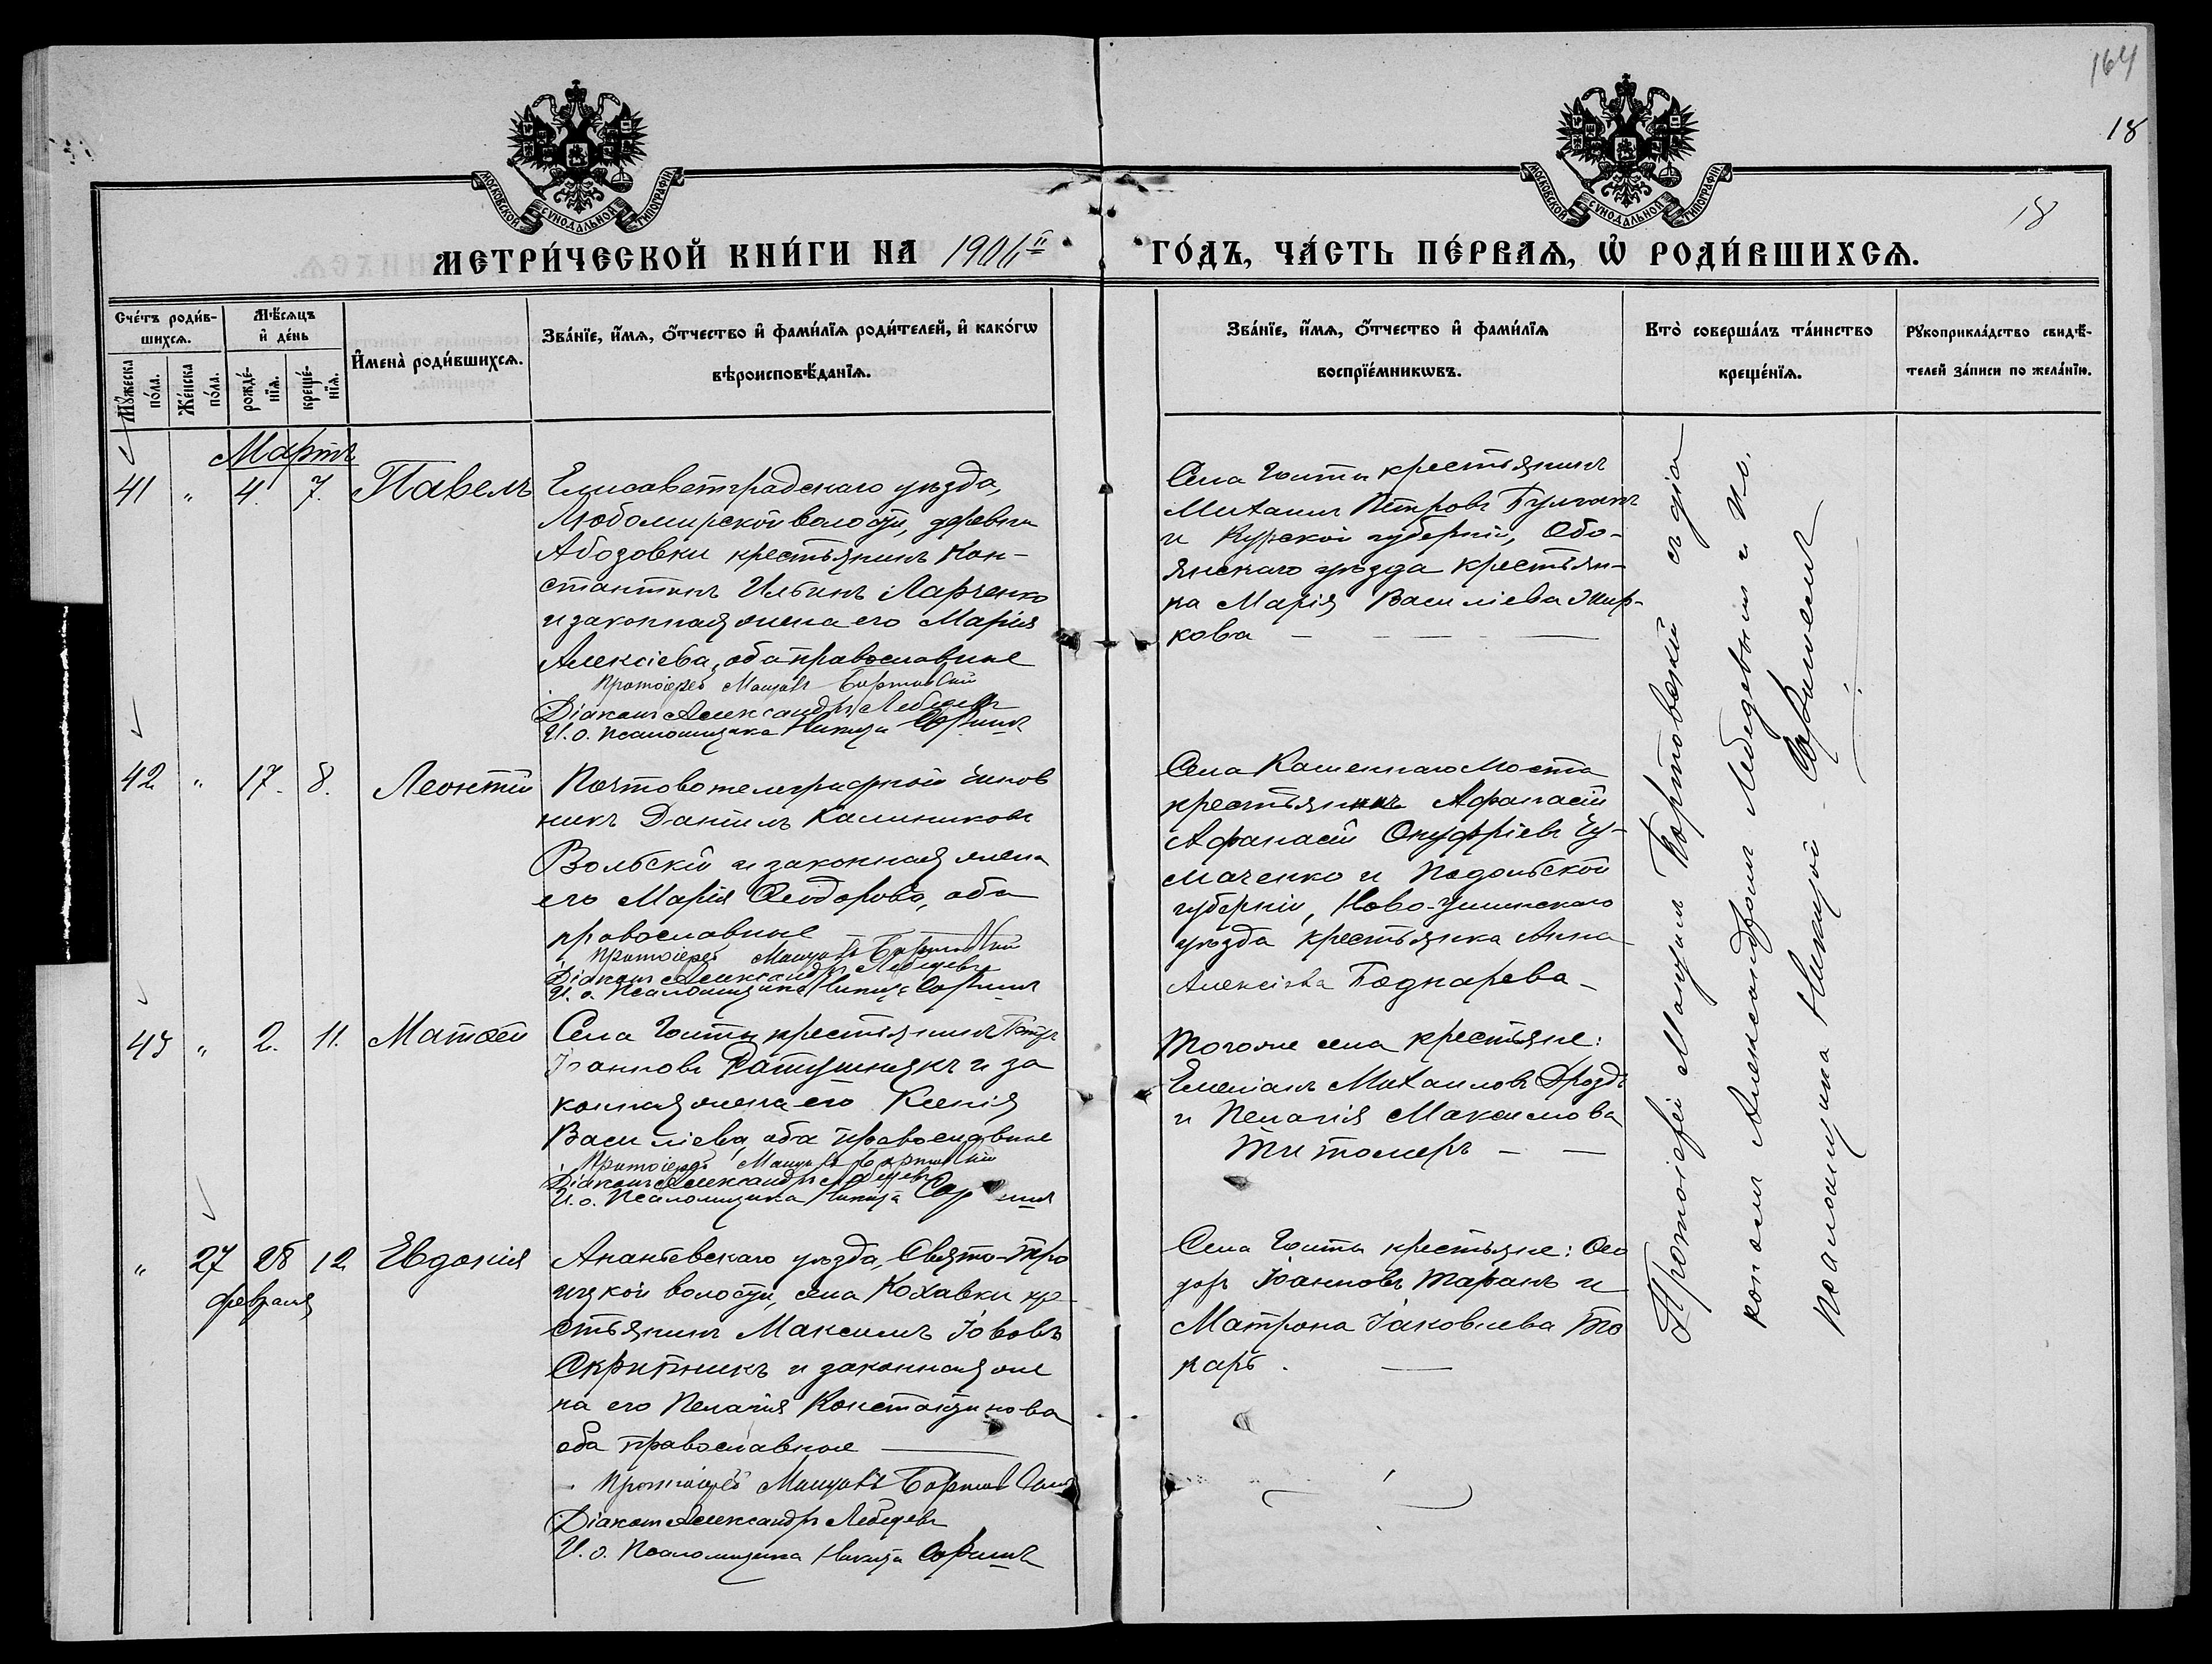 164
18
18
МОСКОВСКОЙ СѴНОДАЛЬНОЙ ТИПОГРАФІИ
МОСКОВСКОЙ СѴНОДАЛЬНОЙ ТИПОГРАФІИ
МЕТРИ́ЧЕСКОЙ КНИ́ГИ НА 1906й
ГО́ДЪ, ЧА́СТЬ ПЕ́РВАѦ, Ѡ҆ РОДИ́ВШИХСѦ.
Сче́тъ роди́в-
шихсѧ.
Мꙋ́жеска по́ла.
Же́нска по́ла.
Мѣ́сѧцъ
и҆ де́нь
рожде́-
нїѧ.
креще́-
нїѧ.
И҆мена̀ роди́вшихсѧ.
Зва́нїе, и҆́мѧ, ѻ҆́тчество и҆ фами́лїѧ роди́телей, и҆ како́гѡ
вѣроисповѣ́данїѧ.
Зва́нїе, и҆́мѧ, ѻ҆́тчество и҆ фами́лїѧ
воспрїе́мникѡвъ.
Кто̀ соверша́лъ та́инство
креще́нїѧ.
Рꙋкоприкла́дство свидѣ́-
телей за́писи по жела́нїю.
Мартъ
41 " 4. 7. Павелъ
Елисаветградскаго уѣзда,
Любомирской волости, деревни
Абозовки крестьянинъ Кон-
стантинъ Ильинъ Ларченко
и законная жена его Марія
Алексіева, оба православные
Протоіерей Бортовскій
Діаконъ Александръ Лебедевъ
И. о. псаломщика Никита
Села Гонты крестьянинъ
Михаилъ Петровъ
и Курской губерніи, Обо-
янскаго уѣзда крестьян-
ка Марія Василіева Жир-
кова
42 " 17. 8. Леонтій
Почтовотелеграфный чинов
никъ Даніилъ Калиниковъ
Вольскій и законная жена
его Марія Ѳеодорова, оба
православные
Протоіерей Бортовскій
Діаконъ Александръ Лебедевъ
И. о. псаломщика Никита
Села Каменнаго Моста
крестьянинъ Афанасій
Афанасій Онуфріевъ Чу-
маченко и Подольской
губерніи, Ново-Ушинскаго
уѣзда крестьянка Анна
Алексіева Боднарева
43 " 2. 11. Матѳей
Села Гонты крестьянинъ Петръ
Іоанновъ Ратушнякъ и за
конная жена его Ксенія
Василіева, оба православные
Протоіерей Бортовскій
Діаконъ Александръ Лебедевъ
И. о. псаломщика Никита
Того же села крестьяне:
Емеліанъ Михаиловъ Дроздъ
и Пелагія Максимова
Титомеръ
" 27 28 12 Евдокія
февраля
Ананьевскаго уѣзда, Свято-Тро
ицкой волости, села Кохавки кре
стьянинъ Максимъ Іововъ
Скрипникъ и законная же
на его Пелагія Константинова
оба православные
Протоіерей Бортовскій
Діаконъ Александръ Лебедевъ
И. о. Псаломщика Никита
Села Гонты крестьяне: Ѳео
доръ Іоанновъ Таранъ и
Матрона Іаковлева То
карь.
Протоіерей Бортовскій съ діа
кономъ Александромъ Лебедевымъ и И. о.
псаломщика Никитой